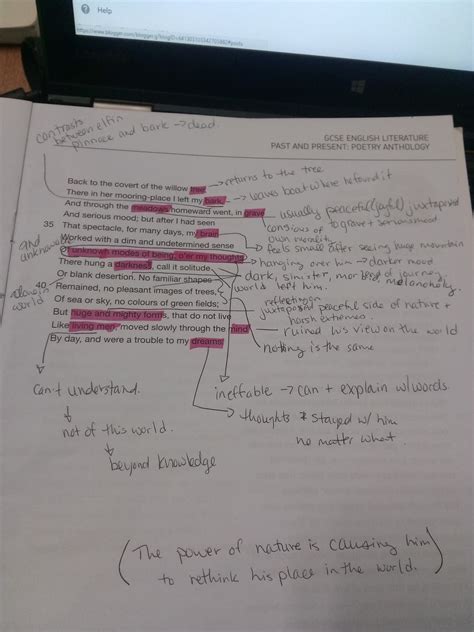 Help
contrasts
between elfin
pinnace and bark → dead.
GCSE ENGLISH LITERATURE
PAST AND PRESENT: POETRY ANTHOLOGY
Back to the covert of the willow tree → returns to the tree
There in her mooring-place I left my bark, → leaves boat where he found it
And through the meadows homeward went, in grave → usually peaceful (joyful) juxtaposed
And serious mood; but after I had seen
to grave & seriousness
35 That spectacle, for many days, my brain
conscious of
own mentality
Worked with a dim and undetermined sense → feels small after seeing huge mountain
and
unknown
Of unknown modes of being; o'er my thoughts → hanging over him → darker mood
There hung a darkness, call it solitude → dark, sinister, morbid
of journey,
melancholy.
Or blank desertion. No familiar shapes
world left him.
40 Remained, no pleasant images of trees,
world
reflecting on
Of sea or sky, no colours of green fields;
juxtaposed peaceful side of nature +
harsh extremes.
But huge and mighty forms, that do not live
Like living men, moved slowly through the mind → ruined his view on the world
By day, and were a trouble to my dreams.
nothing is the same
can't understand.
not of this world.
beyond knowledge
ineffable → can't explain w/ words
thoughts stayed w/ him
no matter what.
(The power of nature is causing him
to rethink his place in the world.)